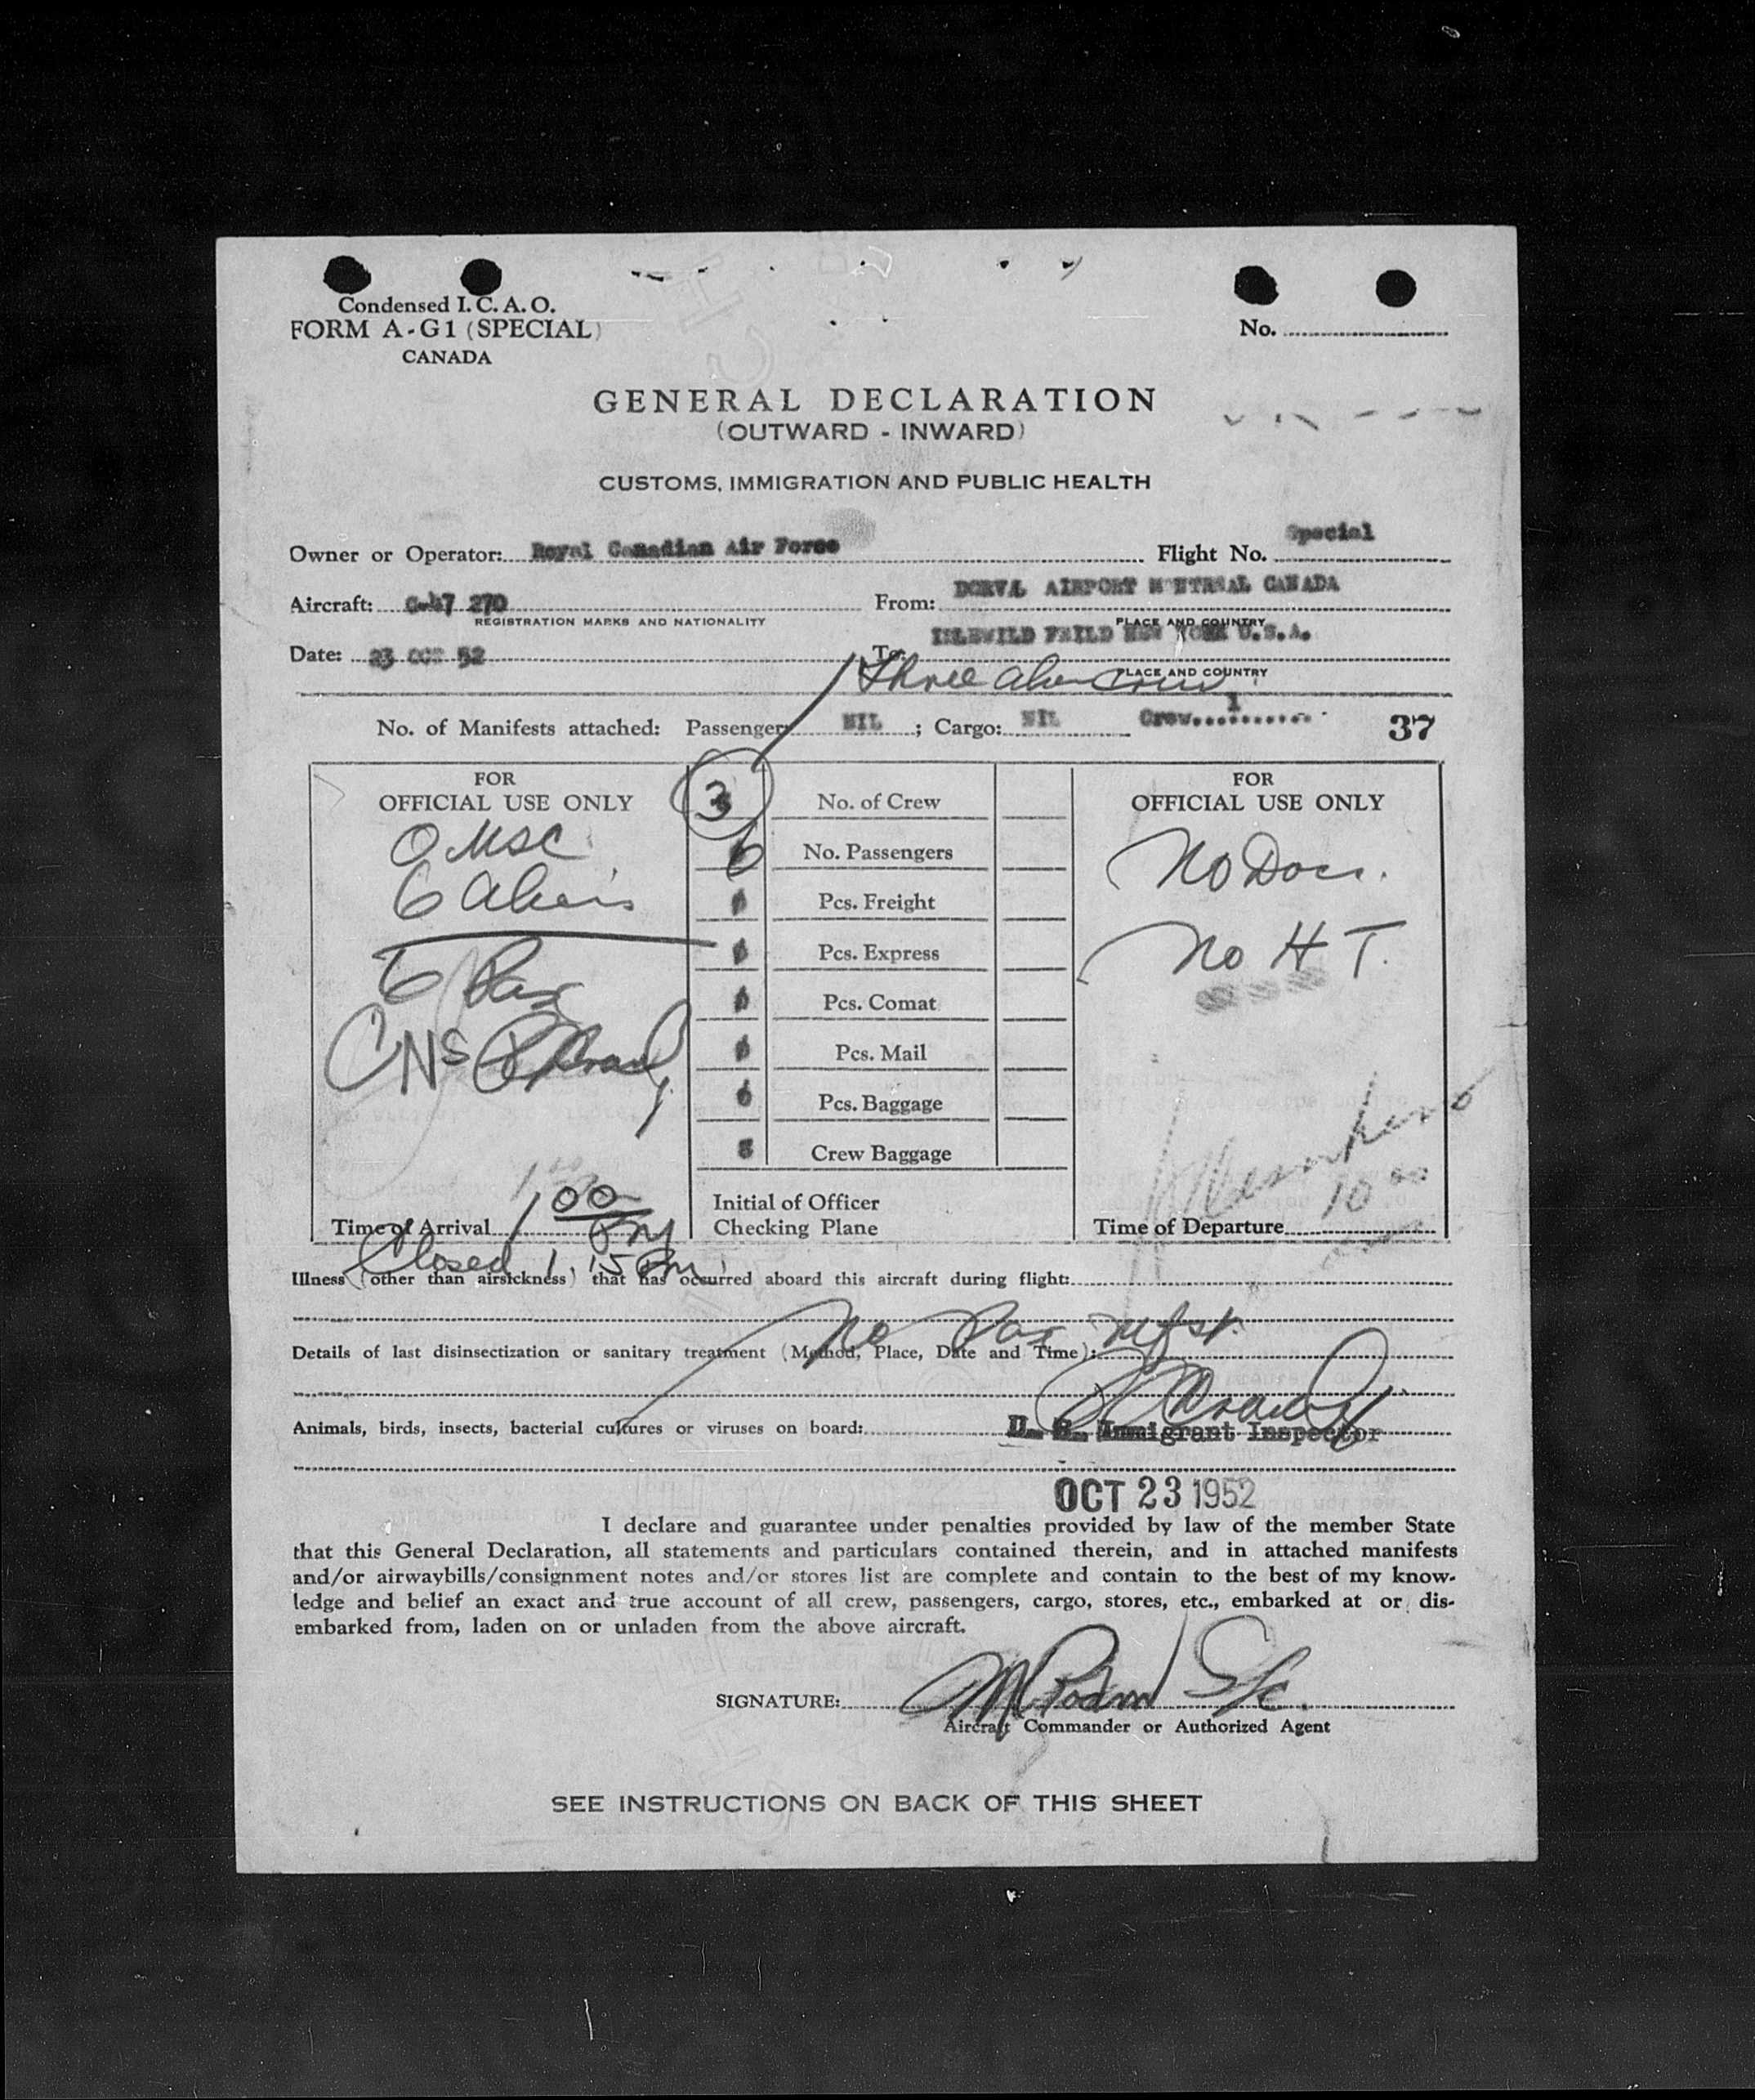 Condensed I. C. A. O.
FORM A-G1 (SPECIAL)
CANADA
No.
GENERAL DECLARATION
(OUTWARD - INWARD)
CUSTOMS, IMMIGRATION AND PUBLIC HEALTH
Owner or Operator: Royal Canadian Air Force Flight No. Special
Aircraft: C-47 270 From: DORVAL AIRPORT MONTREAL CANADA
REGISTRATION MARKS AND NATIONALITY PLACE AND COUNTRY
Date: 23 OCT 52 To: IDLEWILD FEILD NEW YORK U.S.A.
PLACE AND COUNTRY
Three alien crew
No. of Manifests attached: Passenger: NIL ; Cargo: NIL Crew 1 37
FOR
OFFICIAL USE ONLY
3 No. of Crew
FOR
OFFICIAL USE ONLY
0 usc
6 No. Passengers
No Docs.
6 aliens
Pcs. Freight
Pcs. Express
No H T.
6 Pax
Pcs. Comat
CNS
Pcs. Mail
6 Pcs. Baggage
3 Crew Baggage
Initial of Officer
Checking Plane
Time of Arrival 1 00 PM
Time of Departure 10 00
Closed 1:15 Pm
Illness (other than airsickness) that has occurred aboard this aircraft during flight:
No Pax mfst.
Details of last disinsectization or sanitary treatment (Method, Place, Date and Time):
Animals, birds, insects, bacterial cultures or viruses on board: U. S. Immigrant Inspector
OCT 23 1952
I declare and guarantee under penalties provided by law of the member State
that this General Declaration, all statements and particulars contained therein, and in attached manifests
and/or airwaybills/consignment notes and/or stores list are complete and contain to the best of my know-
ledge and belief an exact and true account of all crew, passengers, cargo, stores, etc., embarked at or dis-
embarked from, laden on or unladen from the above aircraft.
SIGNATURE:
Aircraft Commander or Authorized Agent
SEE INSTRUCTIONS ON BACK OF THIS SHEET